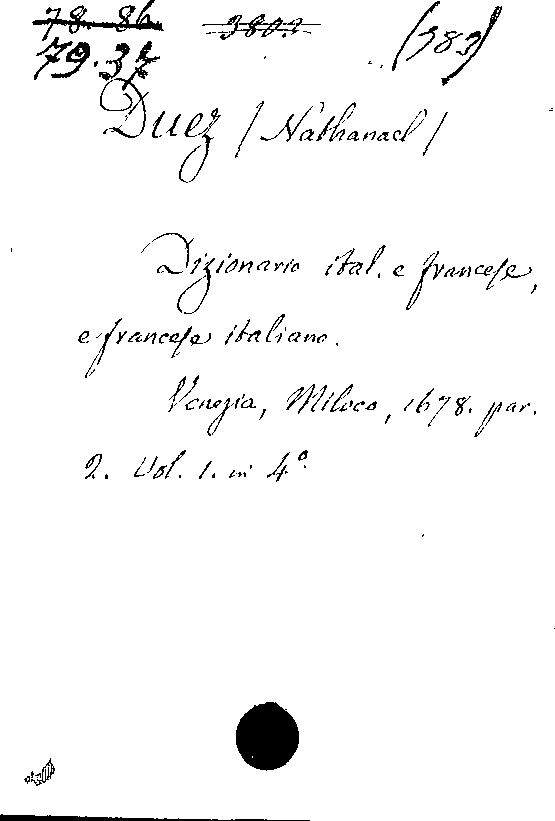 78. 86. 3803 (383)
79.37
Duez / Nathanael /
Dizionario ital. e francese,
e francese italiano.
Venezia, Miloco, 1678. par.
2. Vol. 1. in 4º.